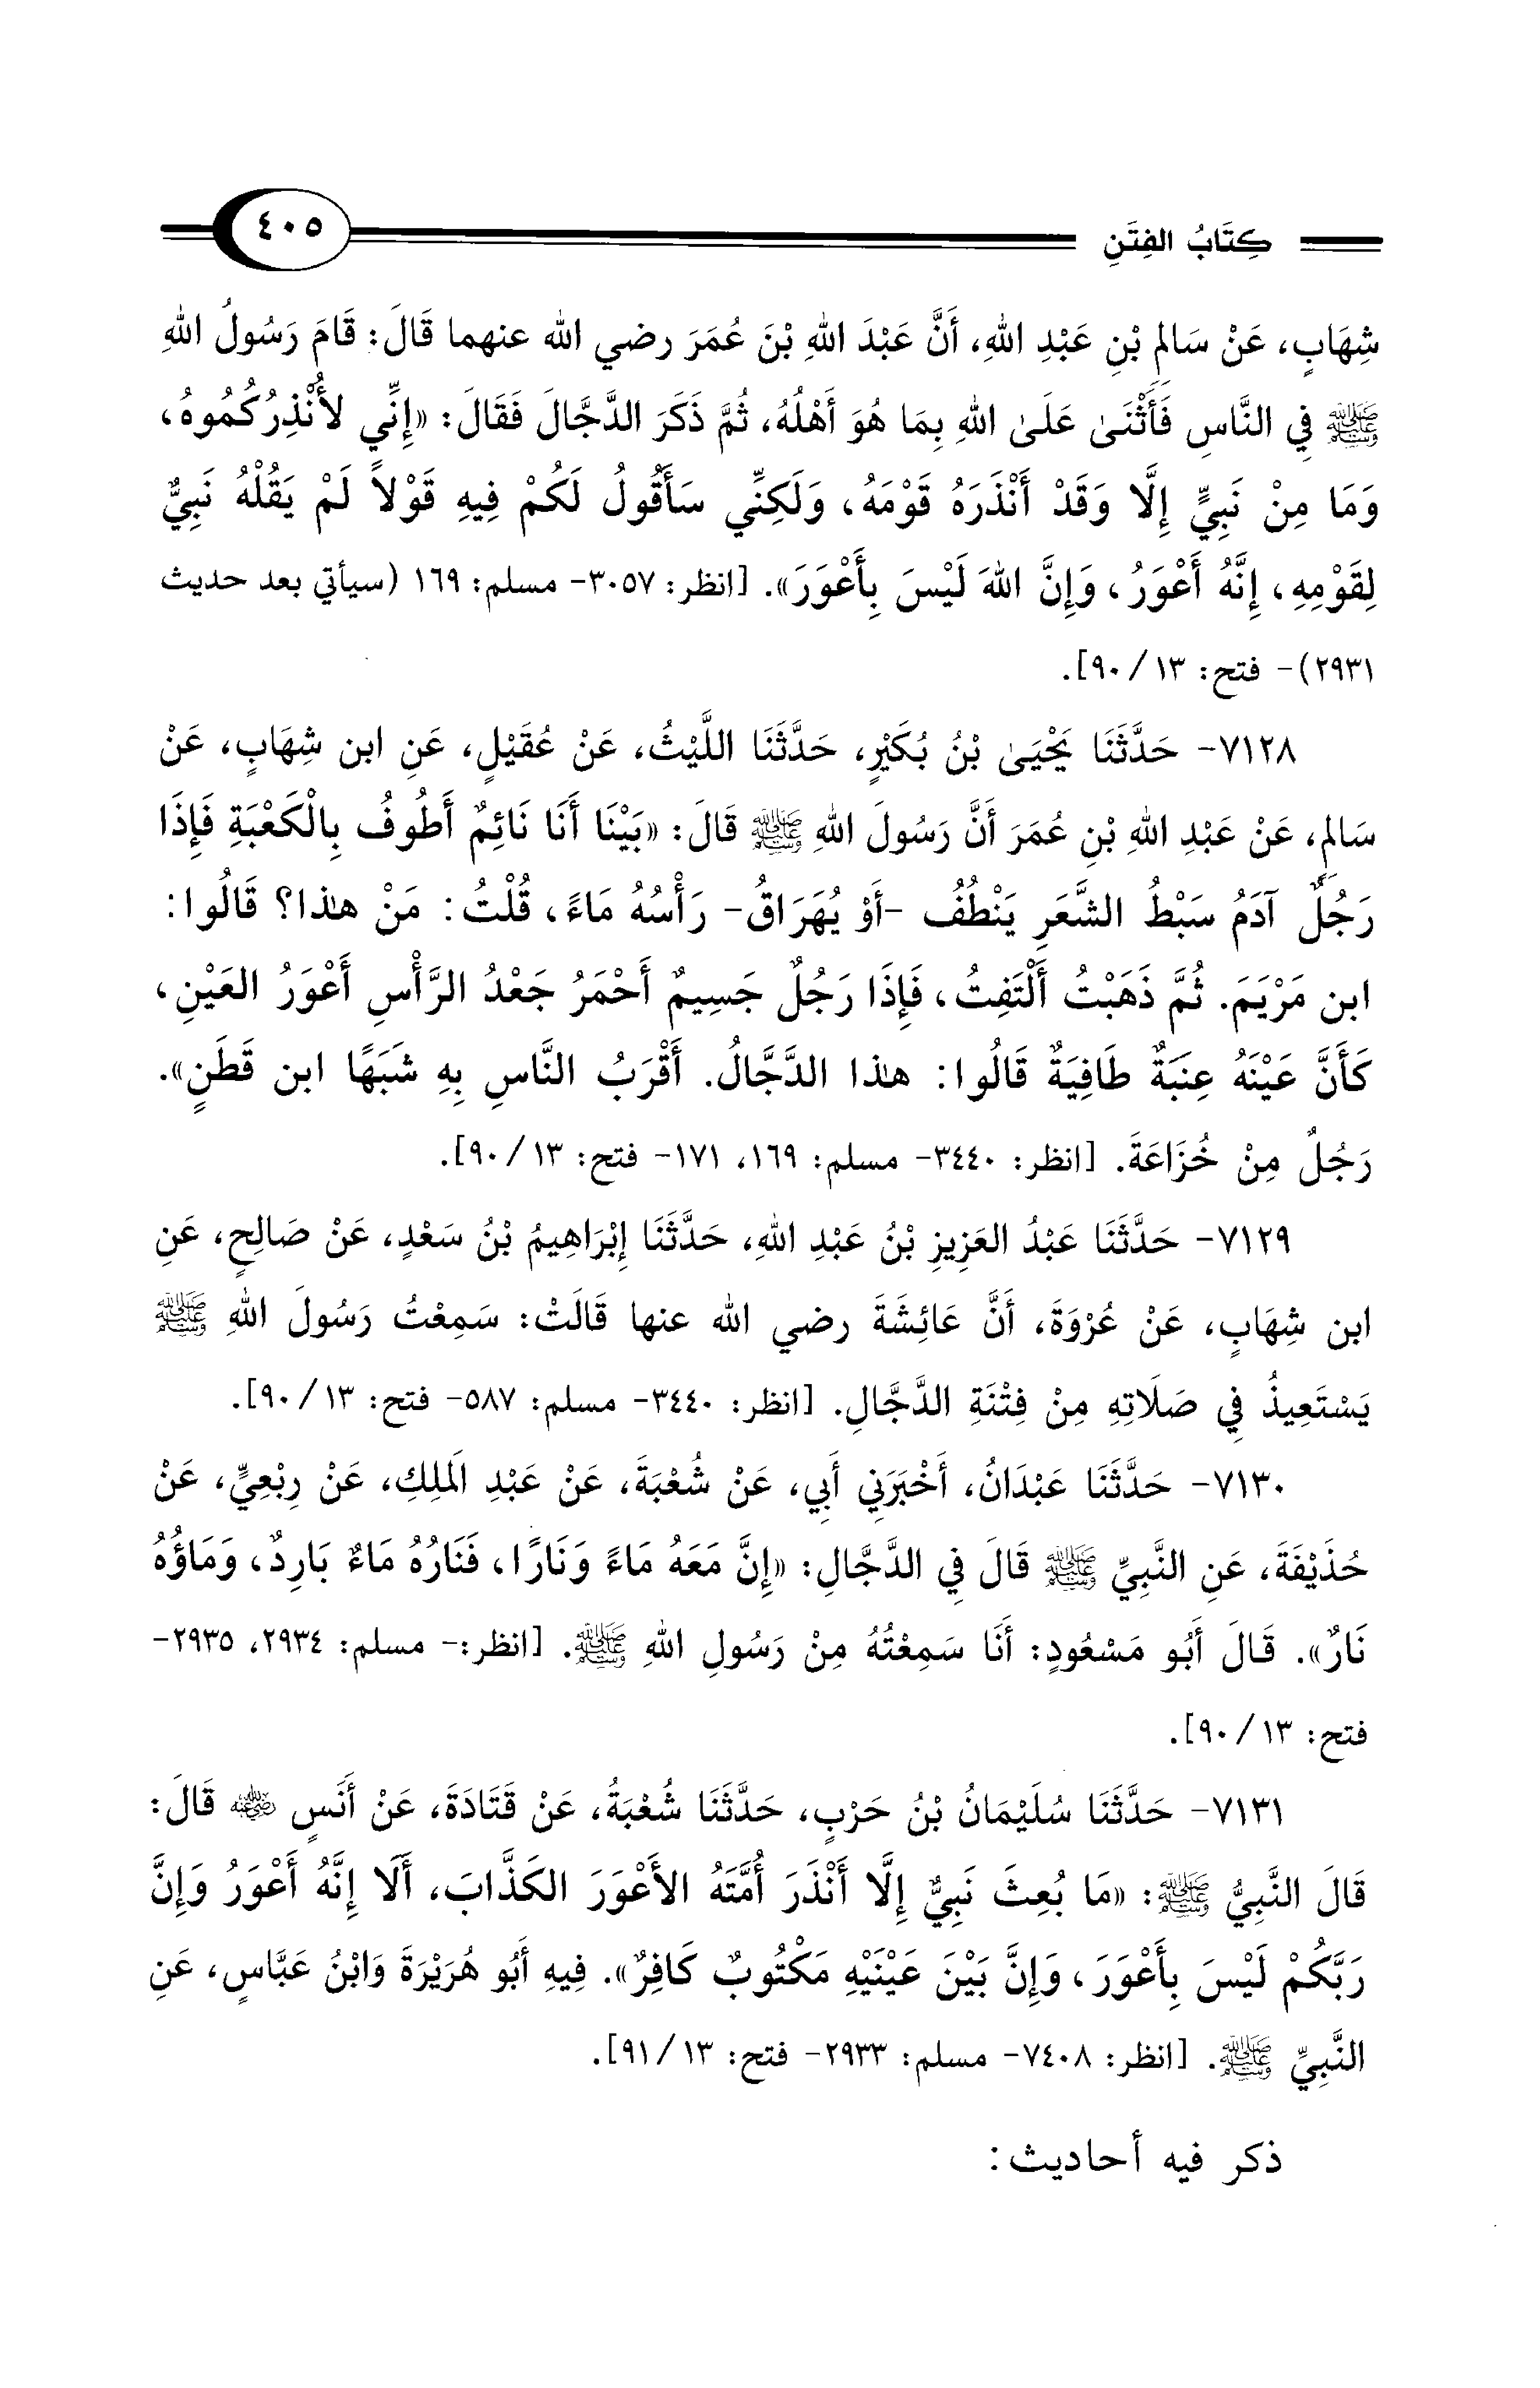 كِتَابُ الفِتَنِ
٤٠٥
شِهَابٍ، عَنْ سَالمِ بْنِ عَبْدِ اللهِ، أَنَّ عَبْدَ اللهِ بْنَ عُمَرَ رضي الله عنهما قَالَ: قَامَ رَسُولُ اللهِ
ﷺ فِي النَّاسِ فَأَثْنَىٰ عَلَىٰ اللهِ بِمَا هُوَ أَهْلُهُ، ثُمَّ ذَكَرَ الدَّجَّالَ فَقَالَ: «إِنِّي لأُنْذِرُكُمُوهُ،
وَمَا مِنْ نَبِيٍّ إِلَّا وَقَدْ أَنْذَرَهُ قَوْمَهُ، وَلَكِنِّي سَأَقُولُ لَكُمْ فِيهِ قَوْلاً لَمْ يَقُلْهُ نَبِيٌّ
لِقَوْمِهِ، إِنَّهُ أَعْوَرُ، وَإِنَّ اللهَ لَيْسَ بِأَعْوَرَ». [انظر: ٣٠٥٧- مسلم: ١٦٩ (سيأتي بعد حديث
٢٩٣١)- فتح: ١٣/ ٩٠].
٧١٢٨- حَدَّثَنَا يَحْيَىٰ بْنُ بُكَيْرٍ، حَدَّثَنَا اللَّيْثُ، عَنْ عُقَيْلٍ، عَنِ ابن شِهَابٍ، عَنْ
سَالمِ، عَنْ عَبْدِ اللهِ بْنِ عُمَرَ أَنَّ رَسُولَ اللهِ ﷺ قَالَ: «بَيْنَا أَنَا نَائِمٌ أَطُوفُ بِالْكَعْبَةِ فَإِذَا
رَجُلٌ آدَمُ سَبْطُ الشَّعَرِ يَنْطُفُ -أَوْ يُهَرَاقُ- رَأْسُهُ مَاءً، قُلْتُ: مَنْ هٰذا؟ قَالُوا:
ابن مَرْيَمَ. ثُمَّ ذَهَبْتُ أَلْتَفِتُ، فَإِذَا رَجُلٌ جَسِيمٌ أَحْمَرُ جَعْدُ الرَّأْسِ أَعْوَرُ العَيْنِ،
كَأَنَّ عَيْنَهُ عِنَبَةٌ طَافِيَةٌ قَالُوا: هٰذا الدَّجَّالُ. أَقْرَبُ النَّاسِ بِهِ شَبَهًا ابن قَطَنٍ».
رَجُلٌ مِنْ خُزَاعَةَ. [انظر: ٣٤٤٠- مسلم: ١٦٩، ١٧١- فتح: ١٣/ ٩٠].
٧١٢٩- حَدَّثَنَا عَبْدُ العَزِيزِ بْنُ عَبْدِ اللهِ، حَدَّثَنَا إِبْرَاهِيمُ بْنُ سَعْدٍ، عَنْ صَالِحٍ، عَنِ
ابن شِهَابٍ، عَنْ عُرْوَةَ، أَنَّ عَائِشَةَ رضي الله عنها قَالَتْ: سَمِعْتُ رَسُولَ اللهِ ﷺ
يَسْتَعِيذُ فِي صَلَاتِهِ مِنْ فِتْنَةِ الدَّجَّالِ. [انظر: ٣٤٤٠- مسلم: ٥٨٧- فتح: ١٣/ ٩٠].
٧١٣٠- حَدَّثَنَا عَبْدَانُ، أَخْبَرَنِي أَبِي، عَنْ شُعْبَةَ، عَنْ عَبْدِ الَملِكِ، عَنْ رِبْعِيٍّ، عَنْ
حُذَيْفَةَ، عَنِ النَّبِيِّ ﷺ قَالَ فِي الدَّجَّالِ: «إِنَّ مَعَهُ مَاءً وَنَارًا، فَنَارُهُ مَاءٌ بَارِدٌ، وَمَاؤُهُ
نَارٌ». قَالَ أَبُو مَسْعُودٍ: أَنَا سَمِعْتُهُ مِنْ رَسُولِ اللهِ ﷺ. [انظر:- مسلم: ٢٩٣٤، ٢٩٣٥-
فتح: ١٣/ ٩٠].
٧١٣١- حَدَّثَنَا سُلَيْمَانُ بْنُ حَرْبٍ، حَدَّثَنَا شُعْبَةُ، عَنْ قَتَادَةَ، عَنْ أَنَسٍ رضي الله عنه قَالَ:
قَالَ النَّبِيُّ ﷺ: «مَا بُعِثَ نَبِيٌّ إِلَّا أَنْذَرَ أُمَّتَهُ الأَعْوَرَ الكَذَّابَ، أَلَا إِنَّهُ أَعْوَرُ وَإِنَّ
رَبَّكُمْ لَيْسَ بِأَعْوَرَ، وَإِنَّ بَيْنَ عَيْنَيْهِ مَكْتُوبٌ كَافِرٌ». فِيهِ أَبُو هُرَيْرَةَ وَابْنُ عَبَّاسٍ، عَنِ
النَّبِيِّ ﷺ. [انظر: ٧٤٠٨- مسلم: ٢٩٣٣- فتح: ١٣/ ٩١].
ذكر فيه أحاديث: